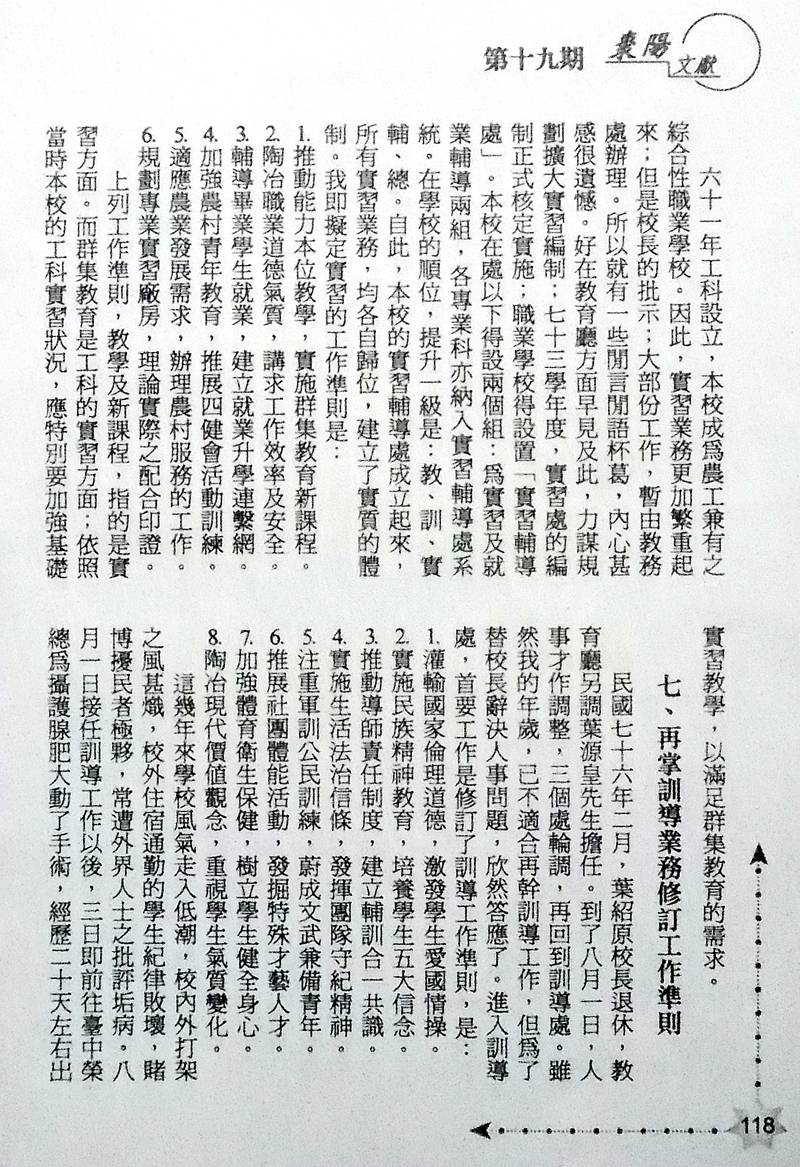 棗陽
文獻
第十九期
六十一年工科設立，本校成爲農工兼有之
綜合性職業學校。因此，實習業務更加繁重起
來；但是校長的批示；大部份工作，暫由教務
處辦理。所以就有一些閒言閒語杯葛，內心甚
感很遺憾。好在教育廳方面早見及此，力謀規
劃擴大實習編制；七十三學年度，實習處的編
制正式核定實施；職業學校得設置「實習輔導
處」。本校在處以下得設兩個組：爲實習及就
業輔導兩組，各專業科亦納入實習輔導處系
統。在學校的順位，提升一級是：教、訓、實
輔、總。自此，本校的實習輔導處成立起來，
所有實習業務，均各自歸位，建立了實質的體
制。我即擬定實習的工作準則是：
1.推動能力本位教學，實施群集教育新課程。
2.陶冶職業道德氣質，講求工作效率及安全。
3.輔導畢業學生就業，建立就業升學連繫網。
4.加強農村青年教育，推展四健會活動訓練。
5.適應農業發展需求，辦理農村服務的工作。
6.規劃專業實習廠房，理論實際之配合印證。
上列工作準則，教學及新課程，指的是實
習方面。而群集教育是工科的實習方面；依照
當時本校的工科實習狀況，應特別要加強基礎
實習教學，以滿足群集教育的需求。
七、再掌訓導業務修訂工作準則
民國七十六年二月，葉紹原校長退休，教
育廳另調葉源皇先生擔任。到了八月一日，人
事才作調整，三個處輪調，再回到訓導處。雖
然我的年歲，已不適合再幹訓導工作，但爲了
替校長辭決人事問題，欣然答應了。進入訓導
處，首要工作是修訂了訓導工作準則，是：
1.灌輸國家倫理道德，激發學生愛國情操。
2.實施民族精神教育，培養學生五大信念。
3.推動導師責任制度，建立輔訓合一共識。
4.實施生活法治信條，發揮團隊守紀精神。
5.注重軍訓公民訓練，蔚成文武兼備青年。
6.推展社團體能活動，發掘特殊才藝人才。
7.加強體育衛生保健，樹立學生健全身心。
8.陶冶現代價值觀念，重視學生氣質變化。
這幾年來學校風氣走入低潮，校內外打架
之風甚熾，校外住宿通勤的學生紀律敗壞，賭
博擾民者極夥，常遭外界人士之批評垢病。八
月一日接任訓導工作以後，三日即前往臺中榮
總爲攝護腺肥大動了手術，經歷二十天左右出
118